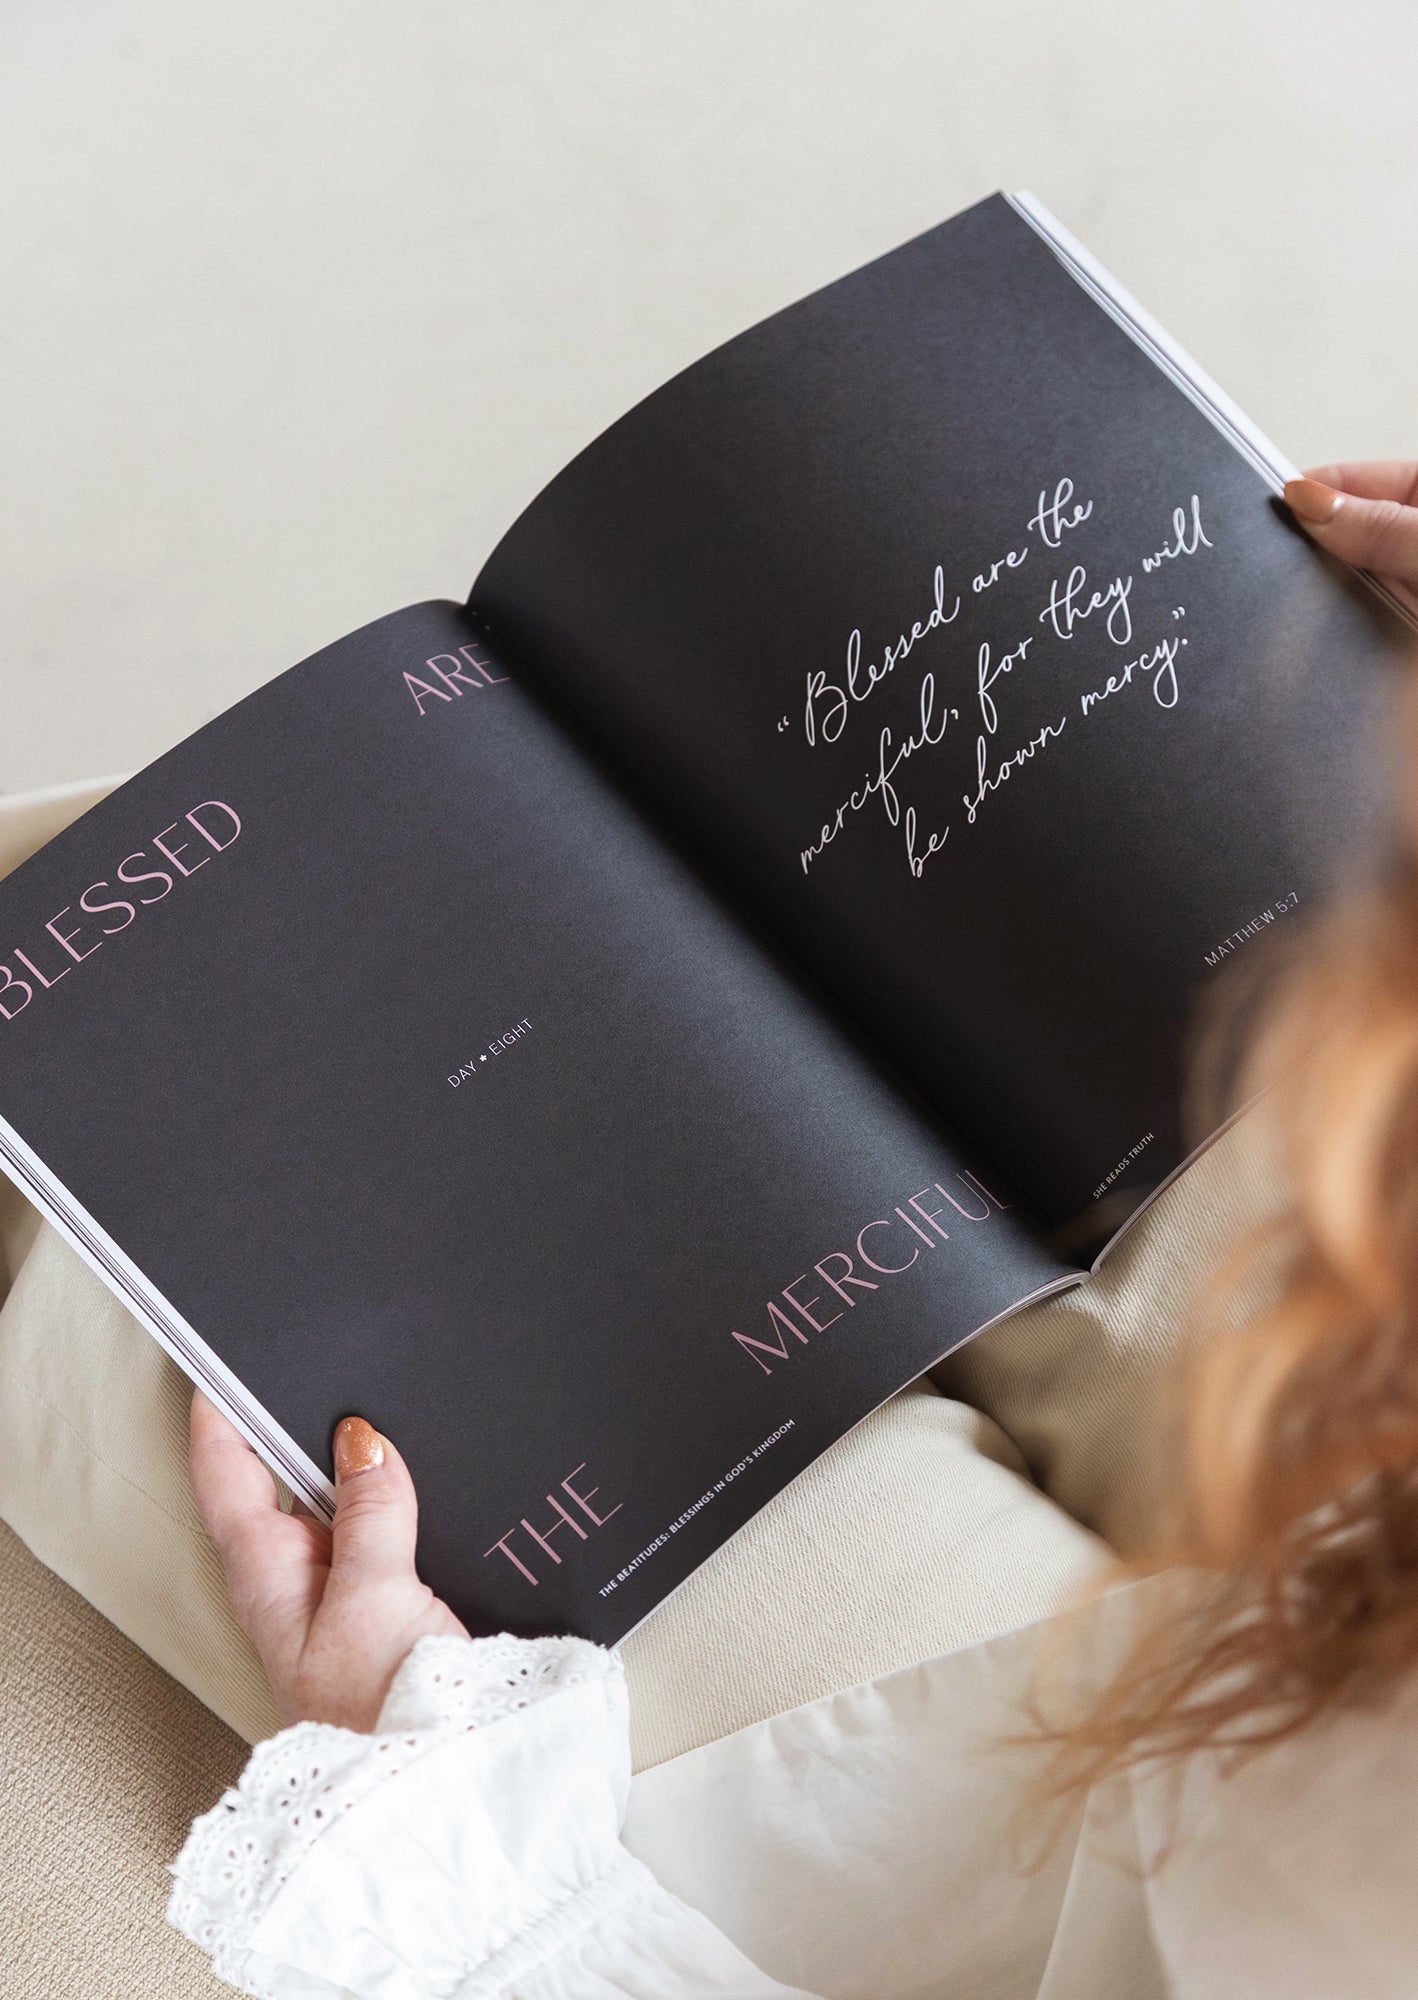 BLESSED
ARE
DAY * EIGHT
THE
MERCIFUL
THE BEATITUDES: BLESSINGS IN GOD'S KINGDOM
“Blessed are the
merciful, for they will
be shown mercy.”
MATTHEW 5:7
SHE READS TRUTH